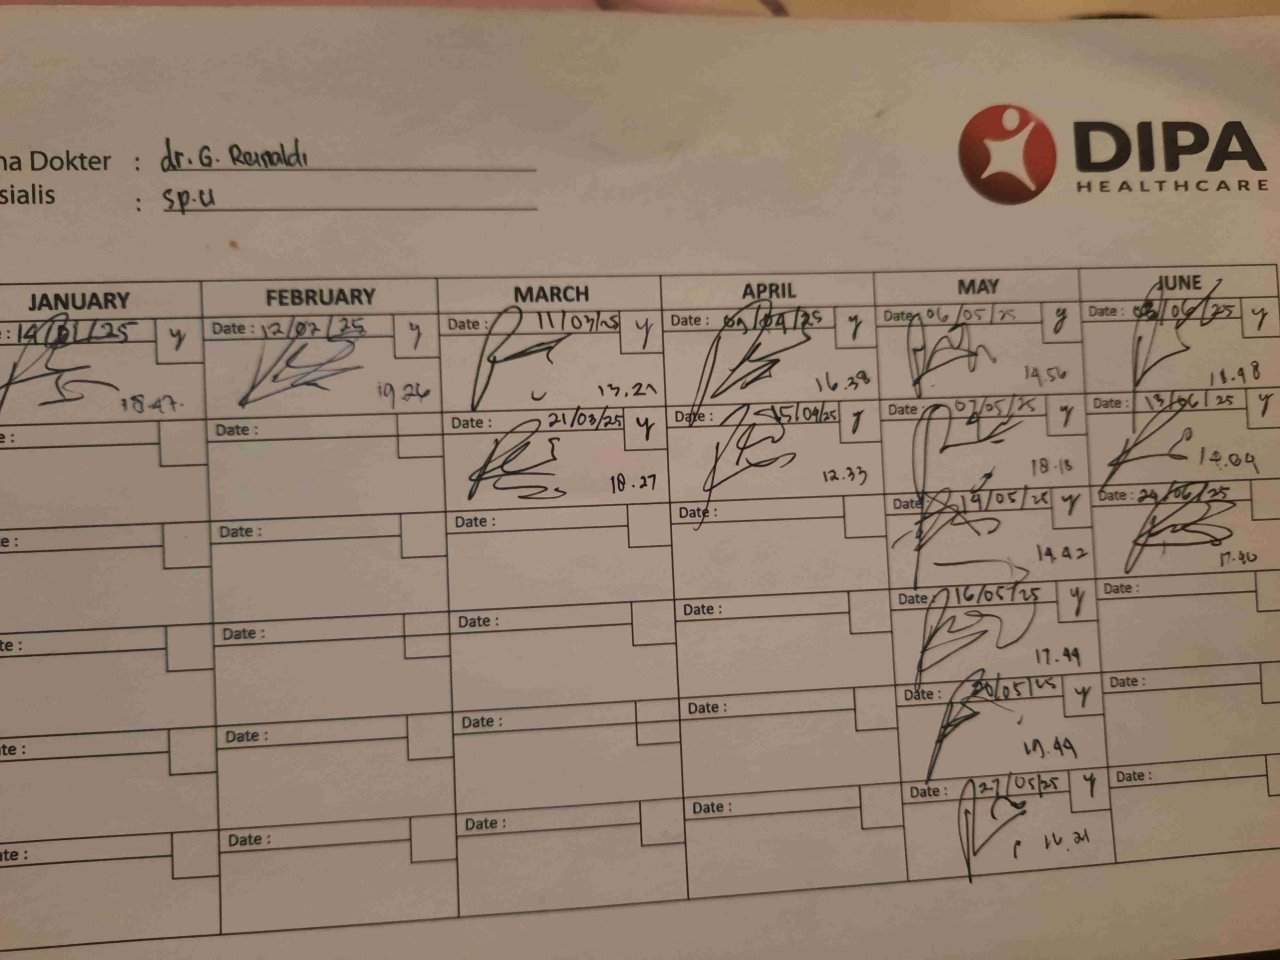 na Dokter : dr. G. Reinaldi
sialis : sp.u
DIPA
HEALTHCARE
JANUARY FEBRUARY MARCH APRIL MAY JUNE
: 14/01/25 y Date : 12/02/25 y Date : 11/03/25 y Date : /04/25 y Date : 06/05/25 y Date : /06/25 y
18.47 19.26 13.21 16.38 14.56 18.48
e : Date : Date : 21/03/25 y Date : 15/04/25 y Date : 07/05/25 y Date : 13/06/25 y
18.27 12.33 18.18 14.04
e : Date : Date : Date : Date : 14/05/25 y Date : 24/06/25
14.42 17.40
te : Date : Date : Date : Date : 16/05/25 y Date :
17.44
te : Date : Date : Date : Date : 20/05/25 y Date :
19.44
te : Date : Date : Date : Date : 27/05/25 y Date :
16.21